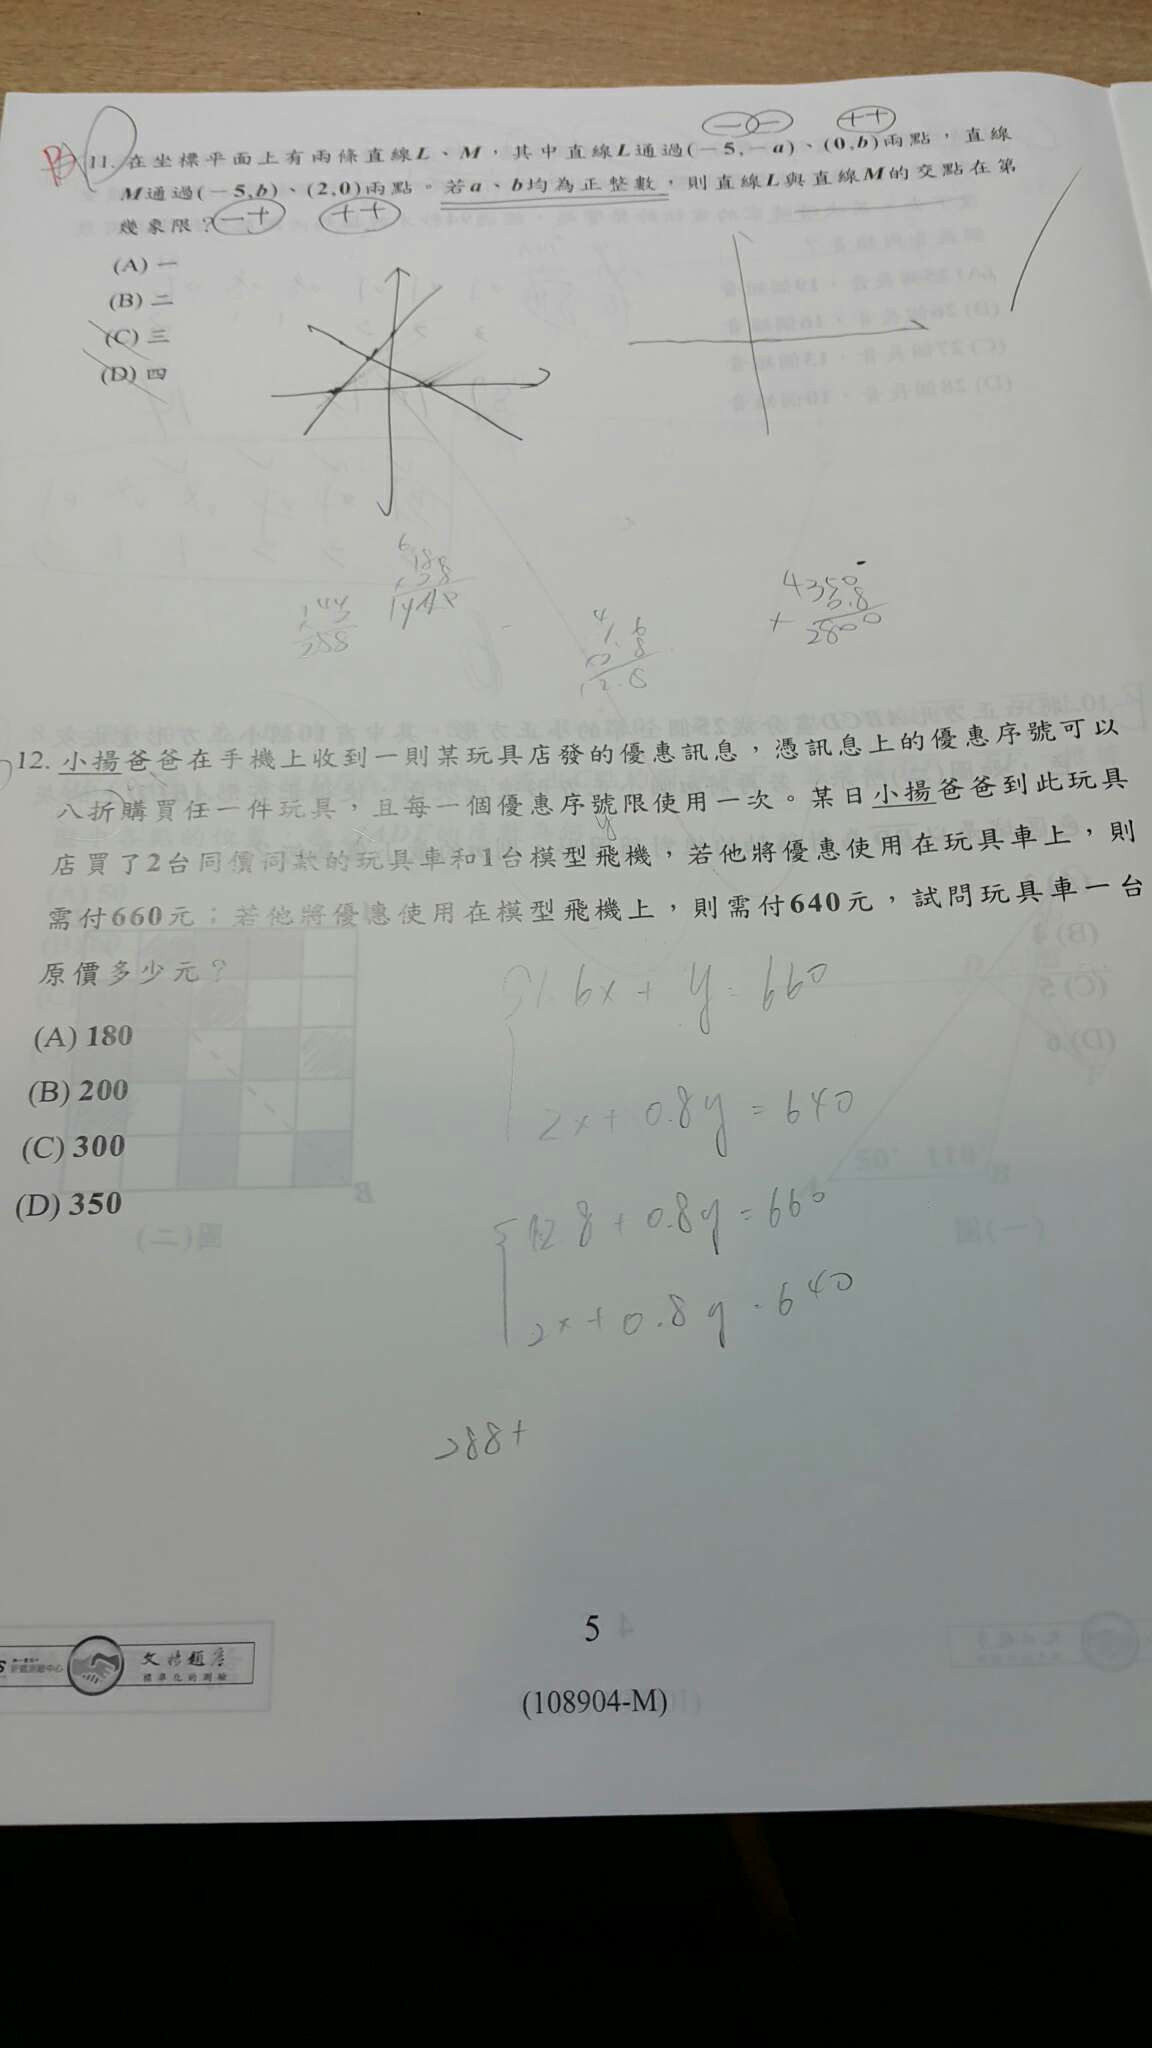 11. 在坐標平面上有兩條直線L、M，其中直線L通過(－5,－a)、(0,b)兩點，直線
M通過(－5,b)、(2,0)兩點。若a、b均為正整數，則直線L與直線M的交點在第
幾象限？
－－
＋＋
－＋
＋＋
(A) 一
(B) 二
(C) 三
(D) 四
288
12.8
2800
12. 小揚爸爸在手機上收到一則某玩具店發的優惠訊息，憑訊息上的優惠序號可以
八折購買任一件玩具，且每一個優惠序號限使用一次。某日小揚爸爸到此玩具
店買了2台同價同款的玩具車和1台模型飛機，若他將優惠使用在玩具車上，則
需付660元；若他將優惠使用在模型飛機上，則需付640元，試問玩具車一台
原價多少元？
(A) 180
(B) 200
(C) 300
(D) 350
1.6x + y = 660
2x + 0.8y = 640
8 + 0.8y = 660
2x + 0.8y = 640
288+
5
文揚題庫
標準化的測驗
(108904-M)